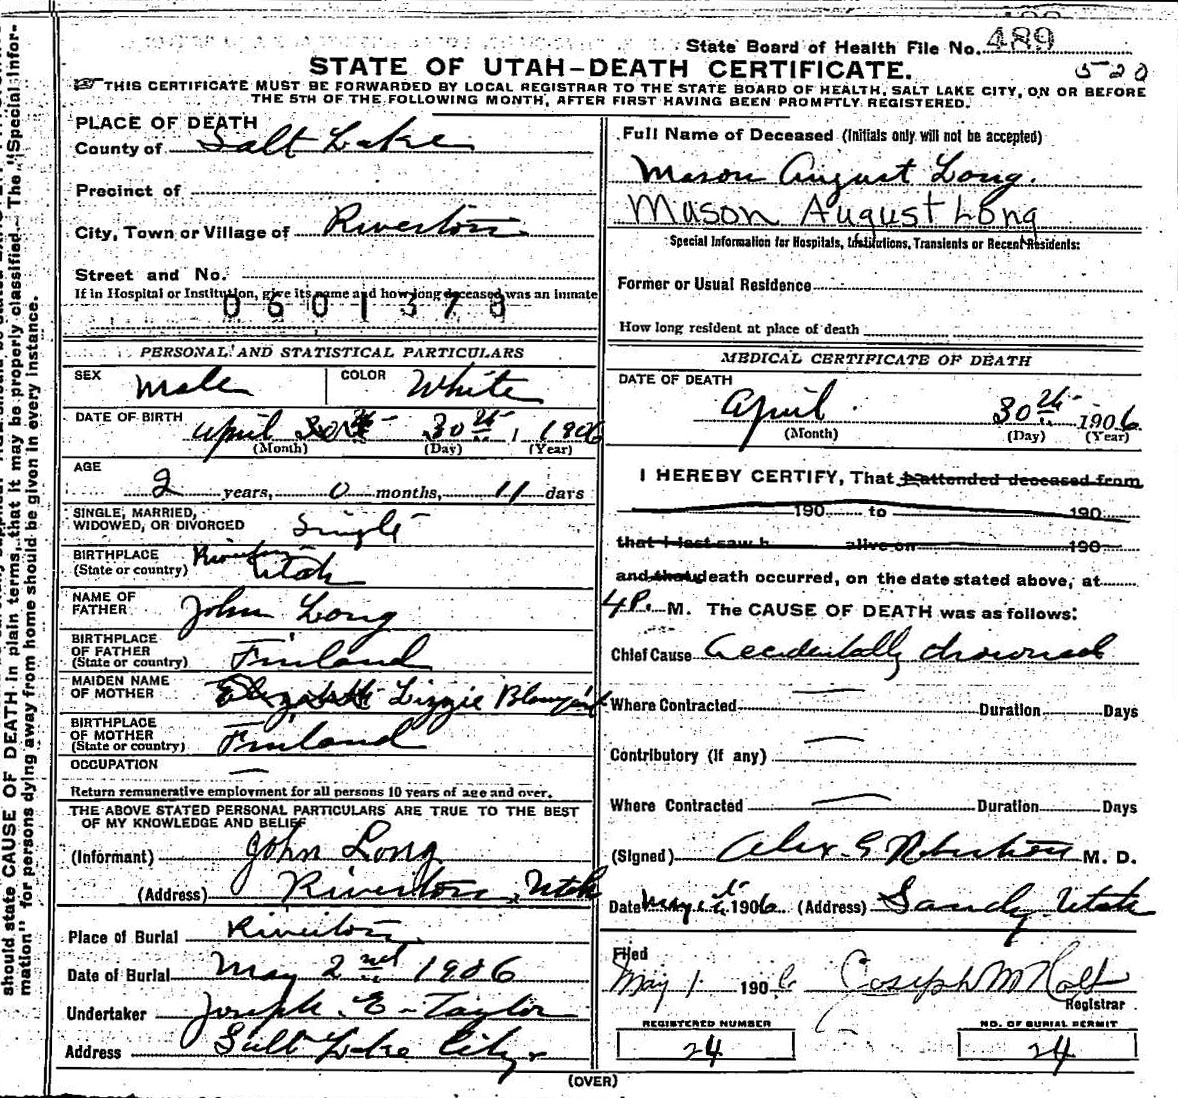 State Board of Health File No. 489
STATE OF UTAH-DEATH CERTIFICATE.
520
THIS CERTIFICATE MUST BE FORWARDED BY LOCAL REGISTRAR TO THE STATE BOARD OF HEALTH, SALT LAKE CITY, ON OR BEFORE
THE 5TH OF THE FOLLOWING MONTH, AFTER FIRST HAVING BEEN PROMPTLY REGISTERED.
PLACE OF DEATH
County of Salt Lake
Precinct of
City, Town or Village of Riverton
Street and No.
If in Hospital or Institution, give its name and how long deceased was an inmate
0601373
PERSONAL AND STATISTICAL PARTICULARS
SEX Male COLOR White
DATE OF BIRTH April 30th 1906
(Month) (Day) (Year)
AGE
2 years, 0 months, 11 days
SINGLE, MARRIED,
WIDOWED, OR DIVORCED Single
BIRTHPLACE Riverton
(State or country) Utah
NAME OF
FATHER John Long
BIRTHPLACE
OF FATHER
(State or country) Finland
MAIDEN NAME
OF MOTHER Elizabeth Lizzie
BIRTHPLACE
OF MOTHER
(State or country) Finland
OCCUPATION —
Return remunerative employment for all persons 10 years of age and over.
THE ABOVE STATED PERSONAL PARTICULARS ARE TRUE TO THE BEST
OF MY KNOWLEDGE AND BELIEF
(Informant) John Long
(Address) Riverton, Utah
Place of Burial Riverton
Date of Burial May 2nd 1906
Undertaker Joseph E. Taylor
Address Salt Lake City
Full Name of Deceased (Initials only will not be accepted)
Mason August Long.
Mason August Long
Special Information for Hospitals, Institutions, Transients or Recent Residents:
Former or Usual Residence
How long resident at place of death
MEDICAL CERTIFICATE OF DEATH
DATE OF DEATH
April 30th 1906
(Month) (Day) (Year)
I HEREBY CERTIFY, That I attended deceased from
190 to 190
that I last saw h alive on 190
and that death occurred, on the date stated above, at
4P. M. The CAUSE OF DEATH was as follows:
Chief Cause Accidentally drowned
Where Contracted — Duration Days
Contributory (If any) —
Where Contracted — Duration Days
(Signed) Alex. E Robertson M. D.
Date May 1906 (Address) Sandy Utah
Filed
May 1 1906 Joseph M Holt
Registrar
REGISTERED NUMBER
24
NO. OF BURIAL PERMIT
24
(OVER)
should state CAUSE OF DEATH in plain terms, that it may be properly classified. The "Special Infor-
mation" for persons dying away from home should be given in every instance.